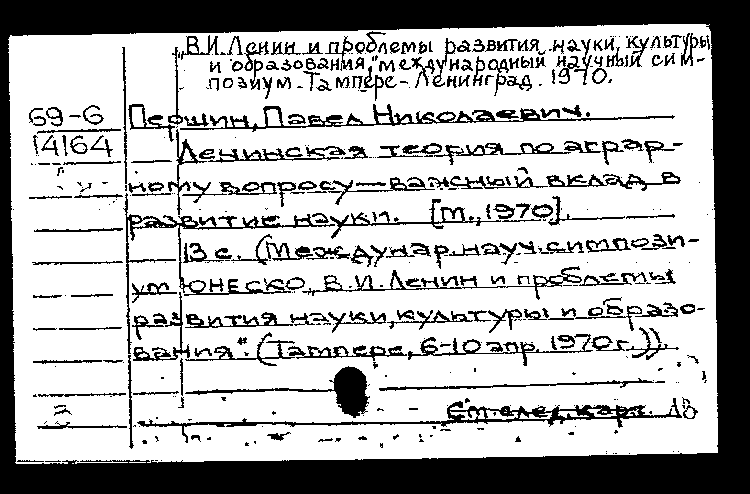 „В.И. Ленин и проблемы развития науки, культуры
и образования," международный научный сим-
позиум. Тампере - Ленинград. 1970.
69-6
14164
Першин, Павел Николаевич.
Ленинская теория по аграр-
ному вопросу — важный вклад в
развитие науки. [М., 1970].
13 с. (Междунар. науч. симпози-
ум ЮНЕСКО „В.И. Ленин и проблемы
развития науки, культуры и образо-
вания". (Тампере, 6-10 апр. 1970 г.)).
См. след. карт.